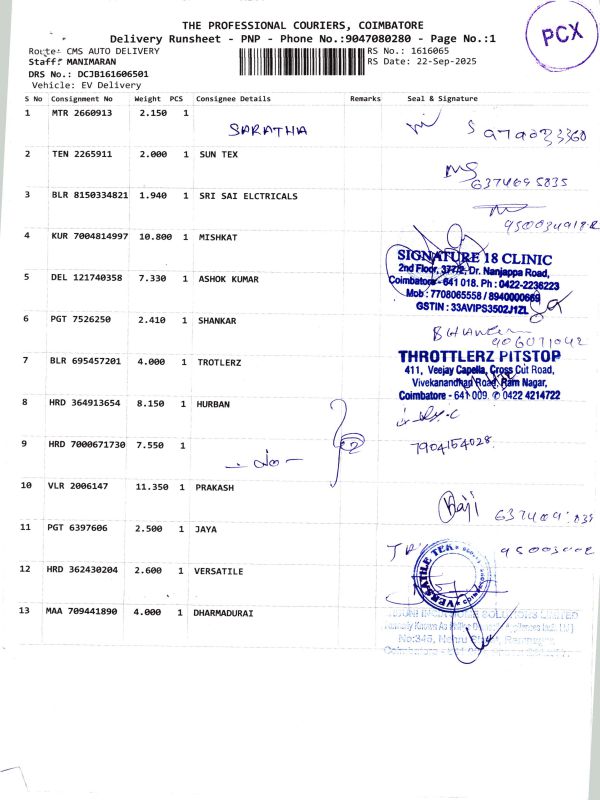 THE PROFESSIONAL COURIERS, COIMBATORE
PCX
Delivery Runsheet - PNP - Phone No.:9047080280 - Page No.:1
Route: CMS AUTO DELIVERY
RS No.: 1616065
Staff: MANIMARAN
RS Date: 22-Sep-2025
DRS No.: DCJB161606501
Vehicle: EV Delivery
S No Consignment No Weight PCS Consignee Details Remarks Seal & Signature
1 MTR 2660913 2.150 1
SARATHA
2 TEN 2265911 2.000 1 SUN TEX
6374695835
3 BLR 8150334821 1.940 1 SRI SAI ELCTRICALS
4 KUR 7004814997 10.800 1 MISHKAT
SIGNATURE 18 CLINIC
2nd Floor, 377/2, Dr. Nanjappa Road,
Coimbatore - 641 018. Ph : 0422-2236223
Mob : 7708065558 / 8940000669
GSTIN : 33AVIPS3502J1ZL
5 DEL 121740358 7.330 1 ASHOK KUMAR
6 PGT 7526250 2.410 1 SHANKAR
7 BLR 695457201 4.000 1 TROTLERZ
THROTTLERZ PITSTOP
411, Veejay Capella, Cross Cut Road,
Vivekanandhan Road, Ram Nagar,
Coimbatore - 641 009. ✆ 0422 4214722
8 HRD 364913654 8.150 1 HURBAN
9 HRD 7000671730 7.550 1
7904154028
10 VLR 2006147 11.350 1 PRAKASH
Raji
11 PGT 6397606 2.500 1 JAYA
12 HRD 362430204 2.600 1 VERSATILE
VERSATILE TEK
13 MAA 709441890 4.000 1 DHARMADURAI
SOLUTIONS LIMITED